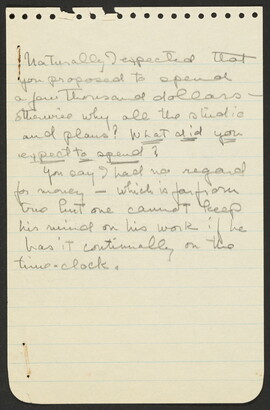 Naturally I expected that
you proposed to spend
a few thousand dollars –
otherwise why all the studio
and plans? What did you
expect to spend?
You say I had no regard
for money – which is far from
true but one cannot keep
his mind on his work if he
has it continually on the
time-clock.